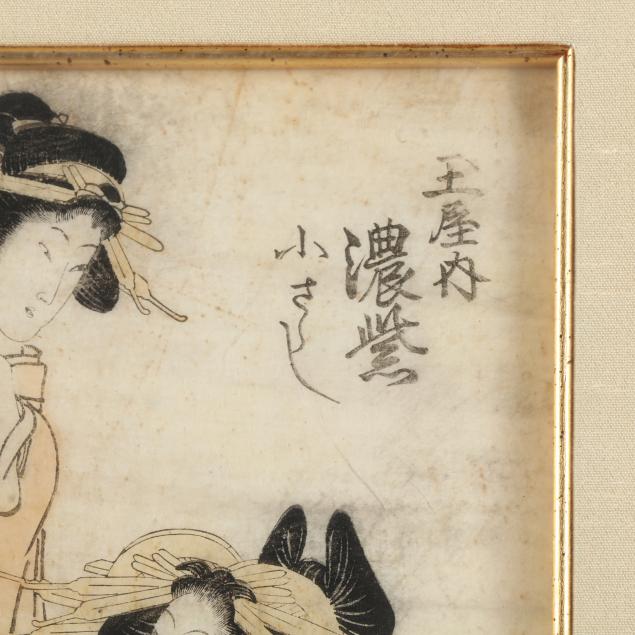 玉屋内
濃紫
小さらし